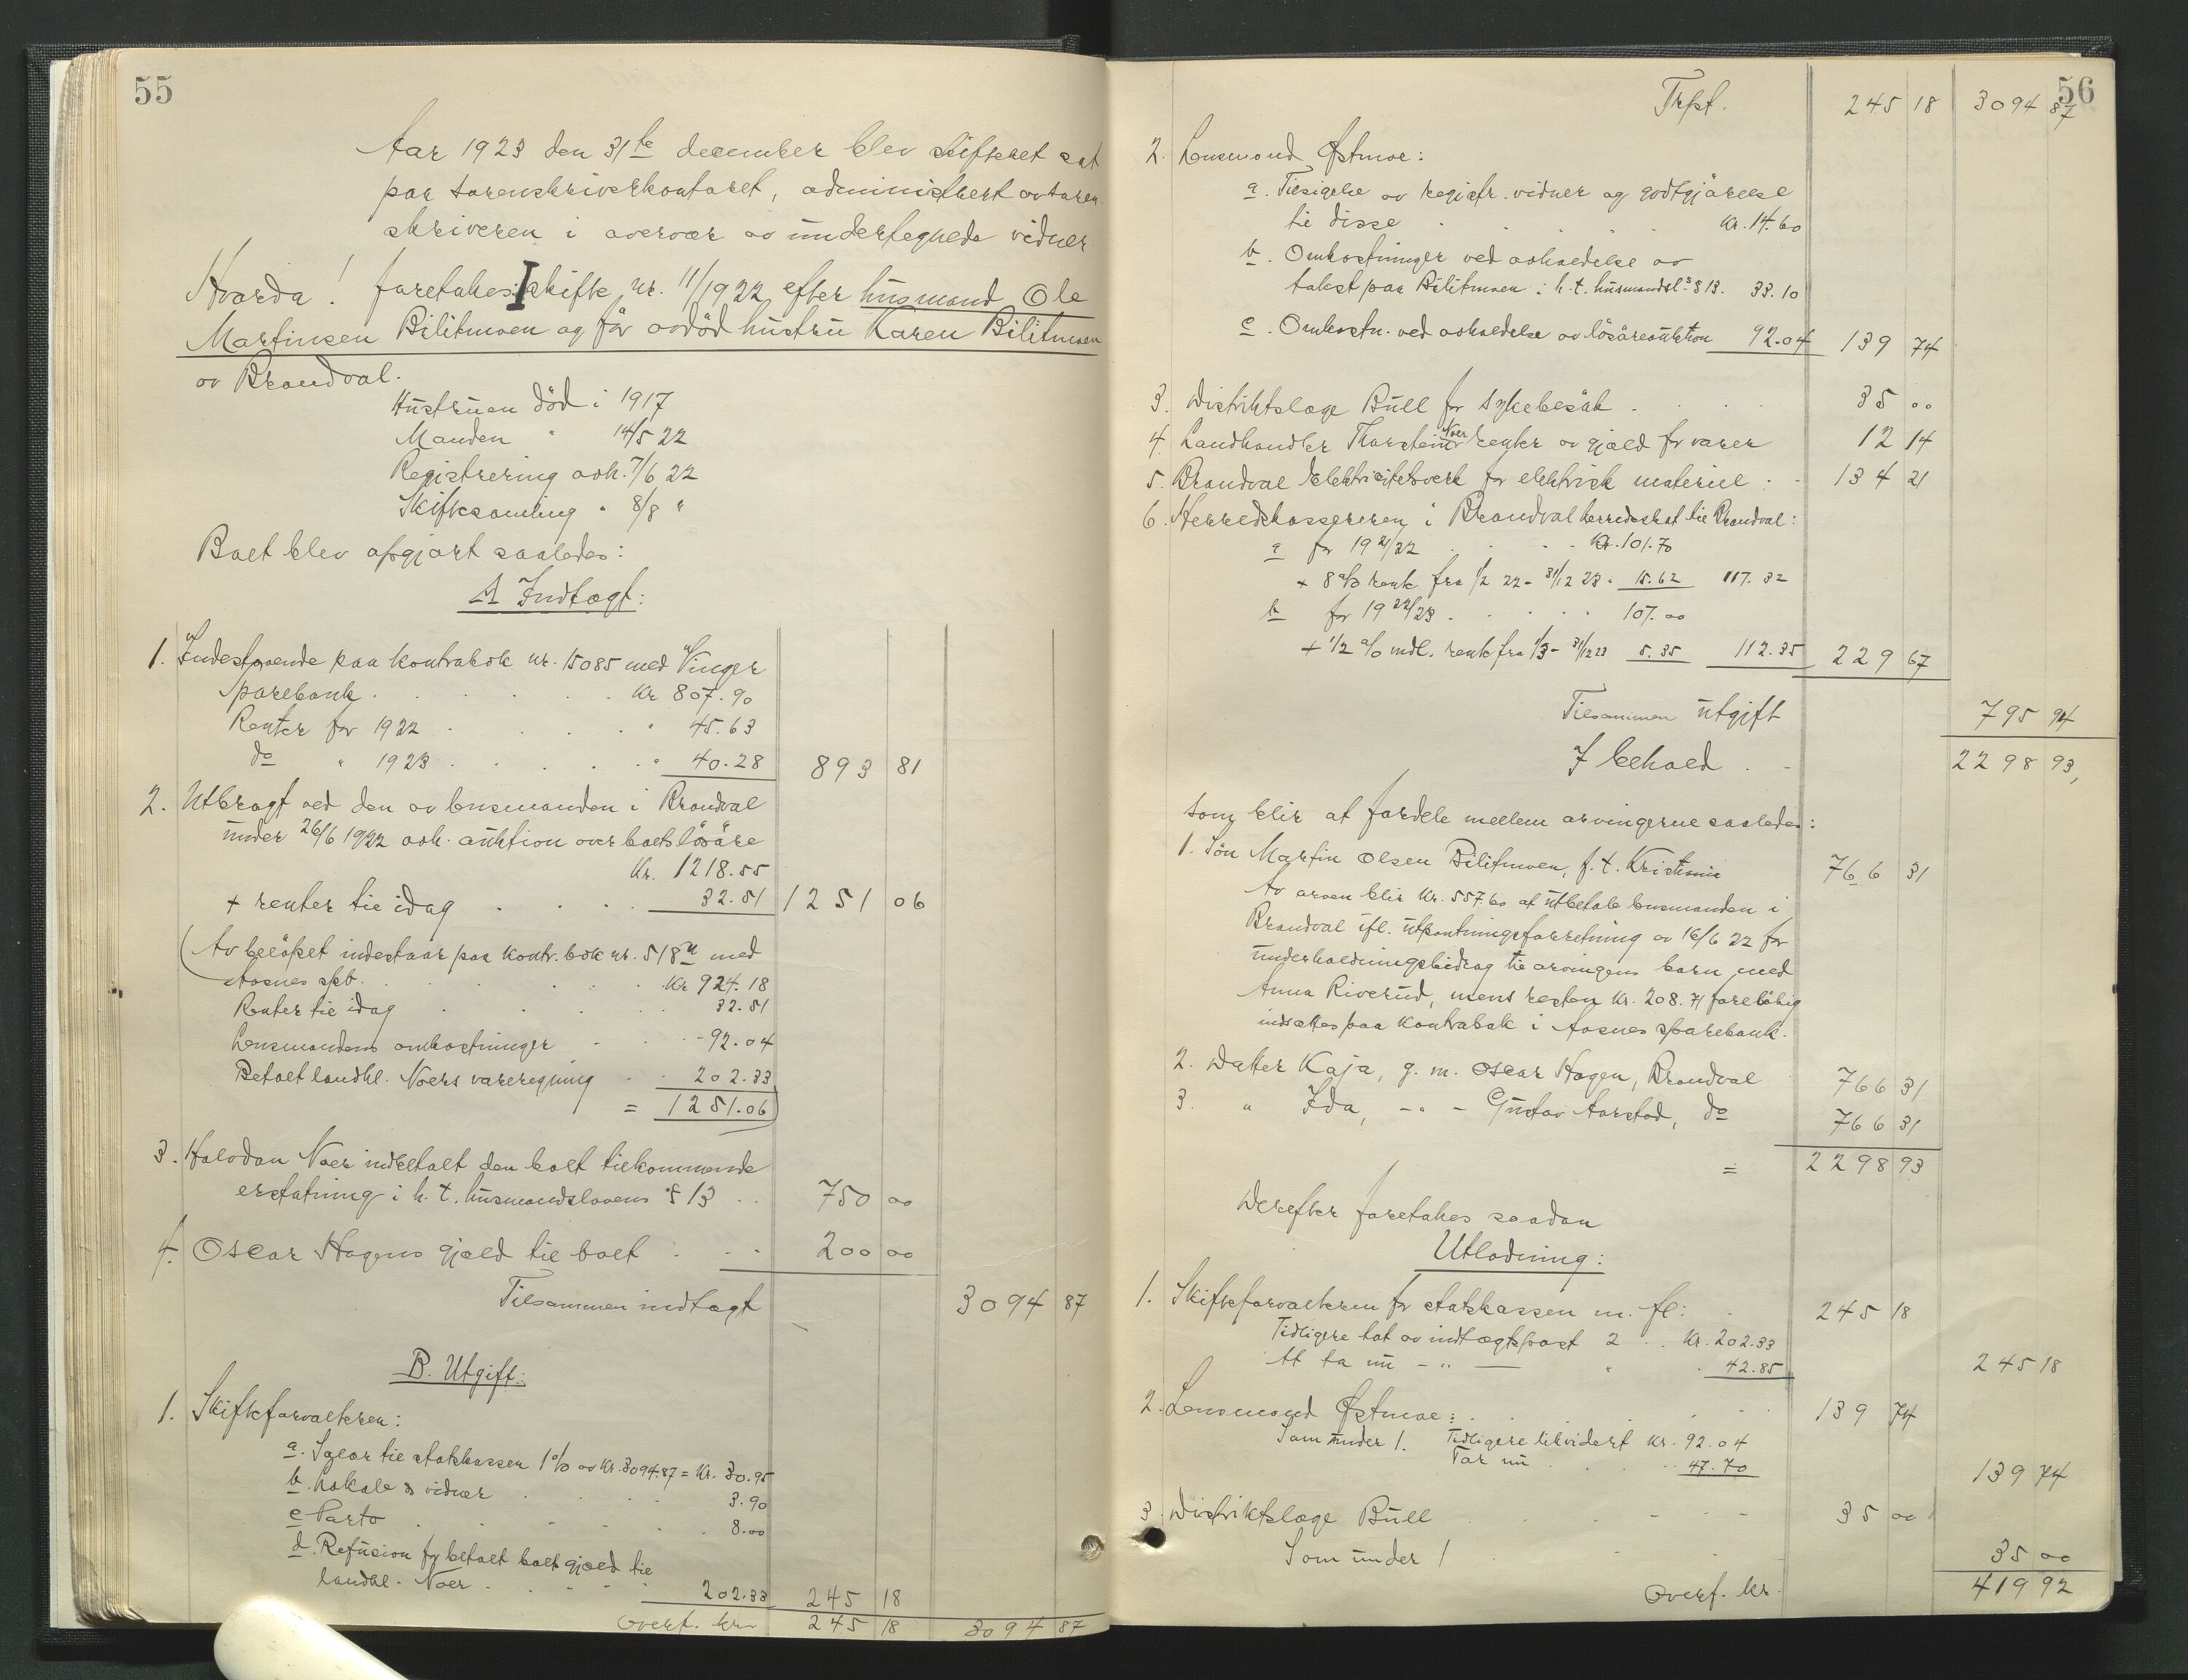 55
Aar 1923 den 31te december blev skifteret sat
paa sorenskriverkontoret, administrert av soren-
skriveren i overvær av undertegnede vidner
Hvorda! foretokes: I skifte nr. 11/1922 efter husmand Ole
Martinsen Bilitmoen og før avdød hustru Karen Bilitmoen
av Brandval.
Hustruen død i 1917
Manden " 14/5 22
Registrering avh. 7/6 22
Skiftesamling " 8/8 "
Boet blev opgjort saaledes:
A Indtægt:
1. Indestaaende paa kontrabok nr. 15085 med Vinger
Sparebank . . . . . Kr 807.90
Renter for 1922 . . . . " 45.63
do " 1923 . . . . " 40.28 893 81
2. Utbragt ved den av lensmanden i Brandval
under 26/6 1922 avh. auktion over boets løsøre
Kr. 1218.55
+ renter til idag . . . . 32.51 1251 06
(Av beløpet indestaar paa kontr.bok nr. 518 med
Aasnes spb. . . . . Kr 924.18
Renter til idag . . . . 32.51
Lensmandens omkostninger . . - 92.04
Betalt landhl. Noers vareregning . . 202.33
= 1251.06)
3. Halvdan Noer indbetalt den boet tilkommende
erstatning i h. t. husmandslovens § 13 . . 750 00
4. Oscar Hagens gjæld til boet . . . 200 00
Tilsammen indtægt 3094 87
B. Utgift:
1. Skifteforvalteren:
a. Sglar til statskassen 1% av Kr. 3094.87 = Kr. 30.95
b. Lokale & vidner . . . . 3.90
c Porto . . . . . 8.00
d. Refusion for betalt boets gjæld til
landhl. Noer . . . . 202.33 245 18
Overf. kr. 245 18 3094 87
56
Trpt. 245 18 3094 87
2. Lensmand Østmoe:
a. Tilsigelse av registr. vidner og godtgjørelse
til disse . . . . . Kr. 14.60
b. Omkostninger ved avholdelse av
takst paa Bilitmoen i h. t. husmandsl.s § 13. 33.10
c. Omkostn. ved avholdelse av løsøreauktion 92.04 139 74
3. Distriktslæge Bull for sykebesøk . . . 35 00
4. Landhandler Thorstein Noer renter av gjæld for varer 12 14
5. Brandval Elektricitetsverk for elektrisk materiel . - 134 21
6. Herredskassereren i Brandval herredsskat til Brandval:
a for 1921/22 . . . Kr. 101.70
+ 8% rente fra 1/2 22 - 31/12 23 . 15.62 117.32
b for 1922/23 . . . . 107.00
+ 1/2 % mdl. rente fra 1/3 - 31/12 23 5.35 112.35 229 67
Tilsammen utgift 795 94
I behold . - 2298 93,
som blir at fordele mellem arvingerne saaledes:
1. Søn Martin Olsen Bilitmoen, f. t. Kristiania 766 31
Av arven blir Kr. 557.60 at utbetale lensmanden i
Brandval ifl. utpantningsforretning av 16/6 22 for
underholdningsbidrag til arvingens barn med
Anna Riverud, mens resten Kr. 208.71 foreløbig
indsættes paa kontrabok i Aasnes sparebank.
2. Datter Kaja, g. m. Oscar Hagen, Brandval 766 31
3. " Ida, - " - Gustav Aarstad, do 766 31
= 2298 93
Derefter foretokes saadan
Utlodning:
1. Skifteforvalteren for statskassen m. fl: . 245 18
Tidligere tat av indtægtspost 2 . . Kr. 202.33
At ta nu - " — " . 42.85 245 18
2. Lensmand Østmoe: . . . . 139 74
Som under 1. Tidligere likvidert Kr. 92.04
Tar nu . . . . 47.70 139 74
3. Distriktslæge Bull . . - - 35 00
Som under 1 . . . 35 00
Overf. kr. 419 92